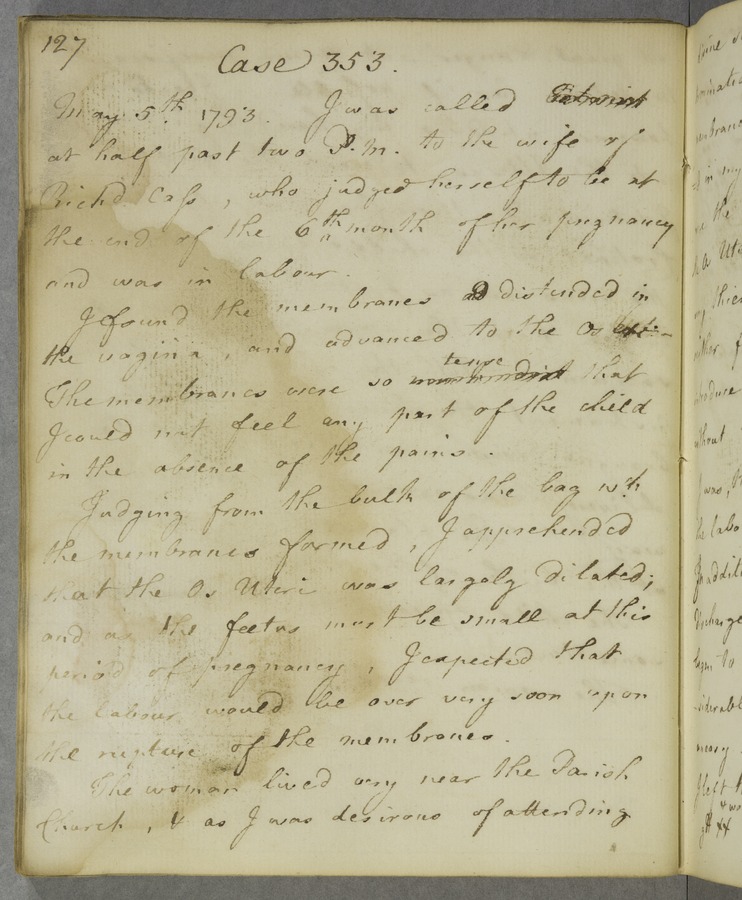 127
Case 353.
May 5th. 1793. I was called
at half past two P.M. to the wife of
Richd Cass, who judged herself to be at
the end of the 6th month of her pregnancy
and was in labour.
I found the membranes distended in
the vagina, and advanced to the Os ext:-
The membranes were so tense that
I could not feel any part of the child
in the absence of the pains.
Judging from the bulk of the bag wch.
the membranes formed, I apprehended
that the Os Uteri was largely dilated;
and as the foetus must be small at this
period of pregnancy, I expected that
the labour would be over very soon upon
the rupture of the membranes.
The woman lived very near the Parish
Church, & as I was desirous of attending